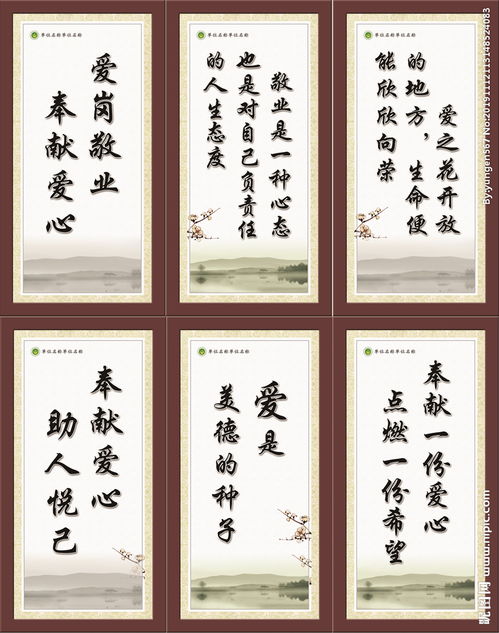 单位名称单位名称
爱岗敬业
奉献爱心
单位名称单位名称
敬业是一种心态
也是对自己负责任
的人生态度
单位名称单位名称
爱之花开放
的地方，生命便
能欣欣向荣
单位名称单位名称
奉献爱心
助人悦己
单位名称单位名称
爱是
美德的种子
单位名称单位名称
奉献一份爱心
点燃一份希望
昵图网 www.nipic.com